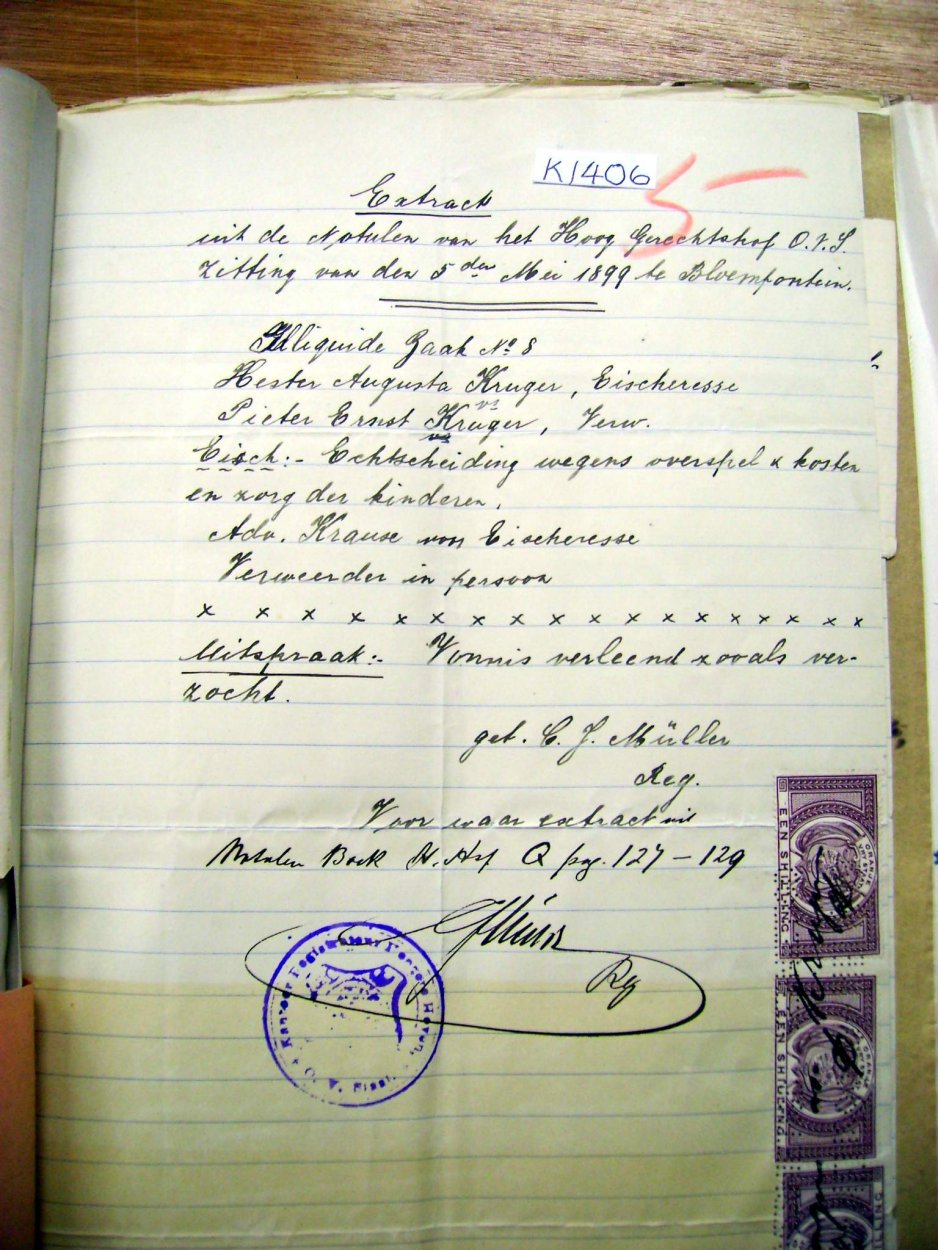 K1406
5 -
Extract
uit de Notulen van het Hoog Gerechtshof O.V.S.
Zitting van den 5den Mei 1899 te Bloemfontein.
Illiquide Zaak No 8
Hester Augusta Kruger, Eischeresse
vs
Pieter Ernst Kruger, Verw.
vs
Eisch:- Echtscheiding wegens overspel & kosten
en zorg der kinderen.
Adv. Krause voor Eischeresse
Verweerder in persoon
x x x x x x x x x x x x x x x x x x
Uitspraak:- Vonnis verleend zooals ver-
zocht.
get. C. J. Müller
Reg.
Voor waar extract uit
Notulen Boek H. Hof Q pag. 127 - 129
Reg
Kantoor Registrateur
O. V.
EEN SHILLING
EEN SHILLING